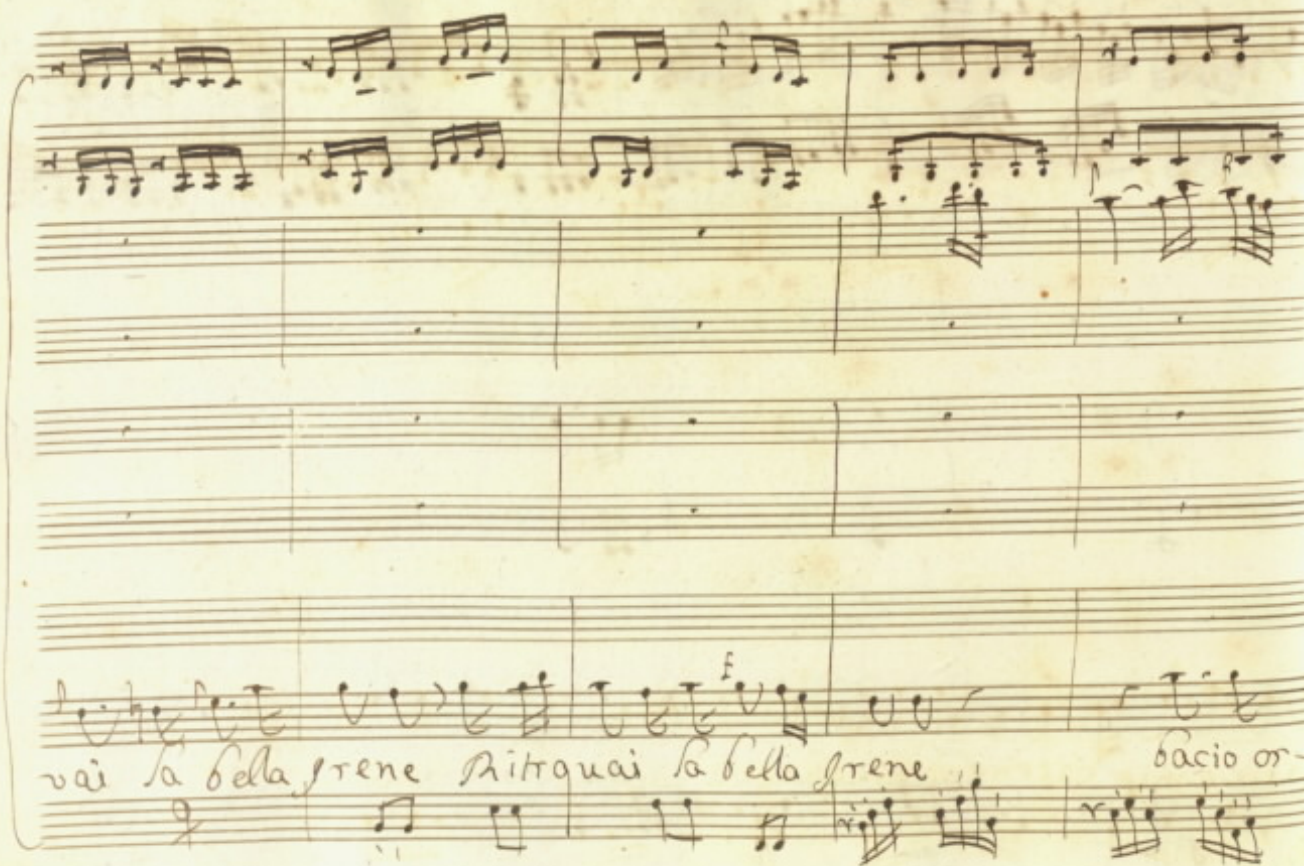 vai la bella Irene Ritrovai la bella Irene bacio or-